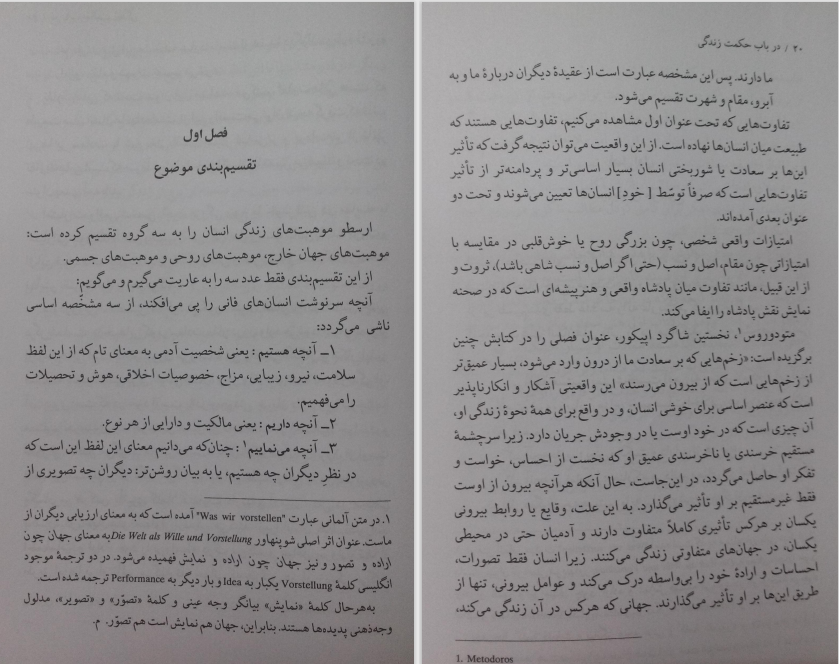 فصل اول
تقسیم‌بندی موضوع
ارسطو موهبت‌های زندگی انسان را به سه گروه تقسیم کرده است:
موهبت‌های جهان خارج، موهبت‌های روحی و موهبت‌های جسمی.
از این تقسیم‌بندی فقط عدد سه را به عاریت می‌گیرم و می‌گویم:
آنچه سرنوشت انسان‌های فانی را پی می‌افکند، از سه مشخّصه اساسی
ناشی می‌گردد:
۱ـ آنچه هستیم: یعنی شخصیت آدمی به معنای تام که از این لفظ
سلامت، نیرو، زیبایی، مزاج، خصوصیات اخلاقی، هوش و تحصیلات
را می‌فهمیم.
۲ـ آنچه داریم: یعنی مالکیت و دارایی از هر نوع.
۳ـ آنچه می‌نماییم۱: چنان‌که می‌دانیم معنای این لفظ این است که
در نظرِ دیگران چه هستیم، یا به بیان روشن‌تر: دیگران چه تصویری از
۱. در متن آلمانی عبارت "Was wir vorstellen" آمده است که به معنای ارزیابی دیگران از
ماست. عنوان اثر اصلی شوپنهاور Die Welt als Wille und Vorstellung به معنای جهان چون
اراده و تصور و نیز جهان چون اراده و نمایش فهمیده می‌شود. در دو ترجمهٔ موجود
انگلیسی کلمهٔ Vorstellung یکبار به Idea و بار دیگر به Performance ترجمه شده است.
به‌هرحال کلمهٔ «نمایش» بیانگر وجه عینی و کلمهٔ «تصوّر» و «تصویر»، مدلول
وجه‌ذهنی پدیده‌ها هستند. بنابراین، جهان هم نمایش است هم تصوّر. م.
۲۰ / در باب حکمت زندگی
ما دارند. پس این مشخصه عبارت است از عقیدهٔ دیگران دربارهٔ ما و به
آبرو، مقام و شهرت تقسیم می‌شود.
تفاوت‌هایی که تحت عنوان اول مشاهده می‌کنیم، تفاوت‌هایی هستند که
طبیعت میان انسان‌ها نهاده است. از این واقعیت می‌توان نتیجه گرفت که تأثیر
این‌ها بر سعادت یا شوربختی انسان بسیار اساسی‌تر و پردامنه‌تر از تأثیر
تفاوت‌هایی است که صرفاً توسّط [خودِ] انسان‌ها تعیین می‌شوند و تحت دو
عنوان بعدی آمده‌اند.
امتیازات واقعی شخصی، چون بزرگی روح یا خوش‌قلبی در مقایسه با
امتیازاتی چون مقام، اصل و نسب (حتی اگر اصل و نسب شاهی باشد)، ثروت و
از این قبیل، مانند تفاوت میان پادشاه واقعی و هنرپیشه‌ای است که در صحنه
نمایش نقش پادشاه را ایفا می‌کند.
متودوروس۱، نخستین شاگرد اپیکور، عنوان فصلی را در کتابش چنین
برگزیده است: «زخم‌هایی که بر سعادت ما از درون وارد می‌شود، بسیار عمیق‌تر
از زخم‌هایی است که از بیرون می‌رسند» این واقعیتی آشکار و انکارناپذیر
است که عنصر اساسی برای خوشی انسان، و در واقع برای همهٔ نحوهٔ زندگی او،
آن چیزی است که در خود اوست یا در وجودش جریان دارد. زیرا سرچشمهٔ
مستقیم خرسندی یا ناخرسندی عمیق او که نخست از احساس، خواست و
تفکر او حاصل می‌گردد، در این‌جاست، حال آنکه هرآنچه بیرون از اوست
فقط غیرمستقیم بر او تأثیر می‌گذارد. به این علت، وقایع یا روابط بیرونی
یکسان بر هرکس تأثیری کاملاً متفاوت دارند و آدمیان حتی در محیطی
یکسان، در جهان‌های متفاوتی زندگی می‌کنند. زیرا انسان فقط تصورات،
احساسات و ارادهٔ خود را بی‌واسطه درک می‌کند و عوامل بیرونی، تنها از
طریق این‌ها بر او تأثیر می‌گذارند. جهانی که هرکس در آن زندگی می‌کند،
1. Metodoros